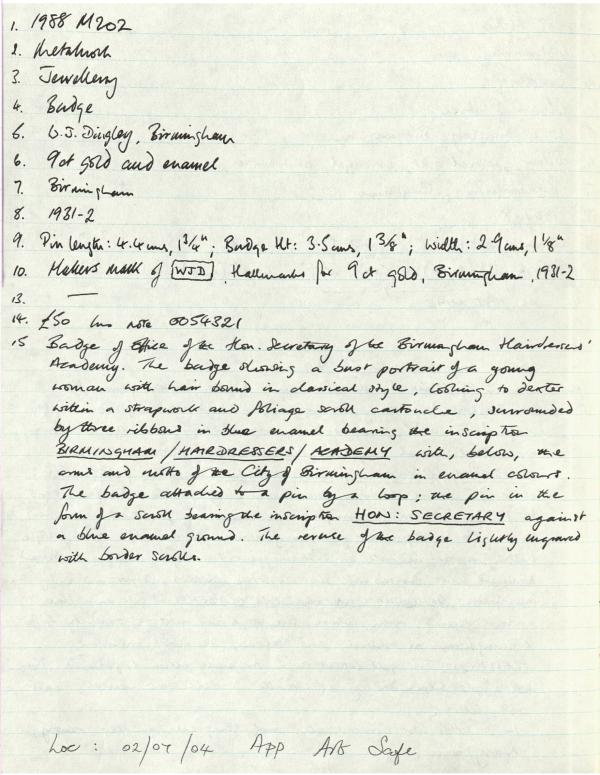 1. 1988 M202
2. Metalwork
3. Jewellery
4. Badge
5. W.J. Dingley, Birmingham
6. 9ct gold and enamel
7. Birmingham
8. 1931-2
9. Pin length: 4.4cms, 1¾"; Badge Ht: 3.5cms, 1⅜"; width: 2.9cms, 1⅛"
10. Makers mark of WJD. Hallmarks for 9ct gold, Birmingham, 1931-2
13. —
14. £50 ins note 0054321
15 Badge of Office of the Hon. Secretary of the Birmingham Hairdressers'
Academy. The badge showing a bust portrait of a young
woman with hair bound in classical style, looking to dexter
within a strapwork and foliage scroll cartouche, surrounded
by three ribbons in blue enamel bearing the inscription
BIRMINGHAM / HAIRDRESSERS / ACADEMY with, below, the
arms and motto of the City of Birmingham in enamel colours.
The badge attached to a pin by a loop; the pin in the
form of a scroll bearing the inscription HON: SECRETARY against
a blue enamel ground. The reverse of the badge lightly engraved
with border scrolls.
Loc: 02/07/04 App Art Safe